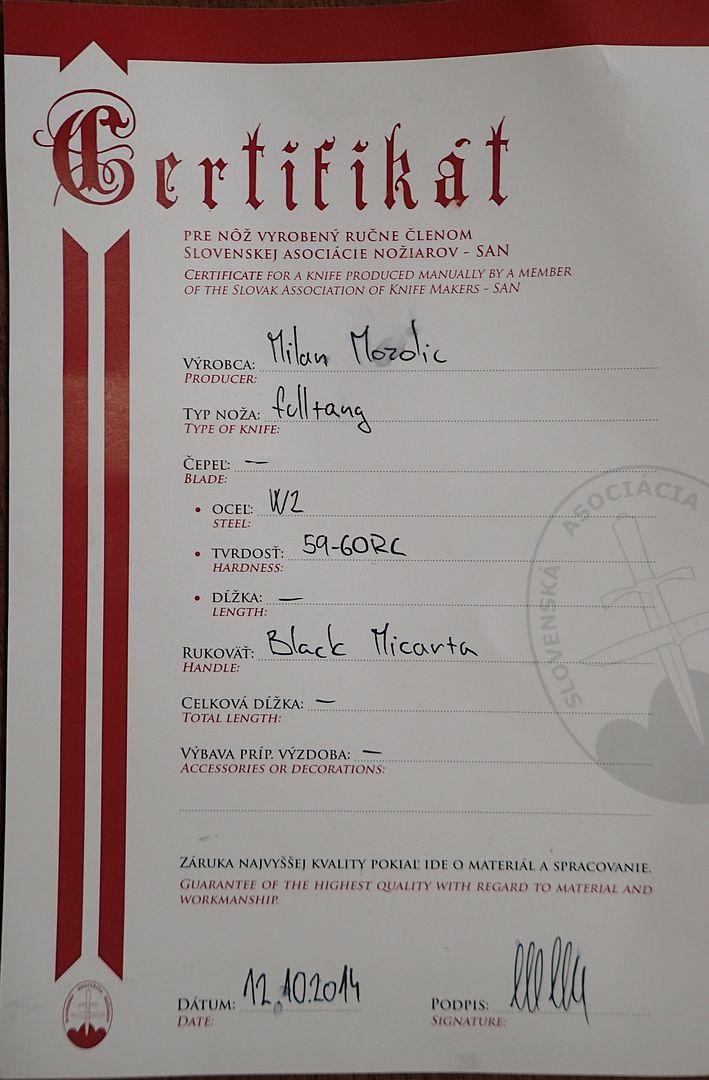 Certifikát
PRE NÔŽ VYROBENÝ RUČNE ČLENOM
SLOVENSKEJ ASOCIÁCIE NOŽIAROV - SAN
CERTIFICATE FOR A KNIFE PRODUCED MANUALLY BY A MEMBER
OF THE SLOVAK ASSOCIATION OF KNIFE MAKERS - SAN
VÝROBCA: Milan Mozolic
PRODUCER:
TYP NOŽA: fulltang
TYPE OF KNIFE:
ČEPEĽ: —
BLADE:
• OCEĽ: W2
STEEL:
• TVRDOSŤ: 59-60RC
HARDNESS:
• DĹŽKA: —
LENGTH:
RUKOVÄŤ: Black Micarta
HANDLE:
CELKOVÁ DĹŽKA: —
TOTAL LENGTH:
VÝBAVA PRÍP. VÝZDOBA: —
ACCESSORIES OR DECORATIONS:
SLOVENSKÁ ASOCIÁCIA
ZÁRUKA NAJVYŠŠEJ KVALITY POKIAĽ IDE O MATERIÁL A SPRACOVANIE.
GUARANTEE OF THE HIGHEST QUALITY WITH REGARD TO MATERIAL AND
WORKMANSHIP.
DÁTUM: 12.10.2014 PODPIS:
DATE: SIGNATURE: